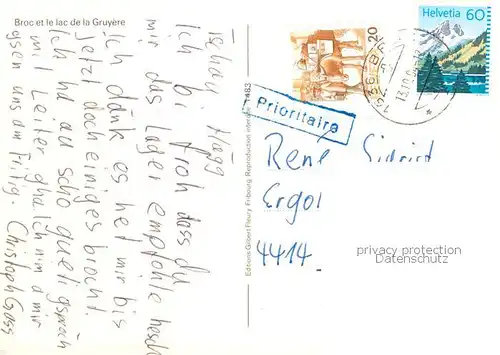 Broc et le lac de la Gruyère
Tschau Hägg
Ich bi froh dass du
mir das Lager empfohle hesch
Ich dänk es het mir bis
jetzt doch einiges brocht.
Ich ha au scho gueti gspräch
mit Leiter gha. Ich
uns am Fritig. Christoph
Editions Gilbert Fleury Fribourg. Reproduction interdite 1483
20
Helvetia 60
Prioritaire
René
4414
privacy protection
Datenschutz